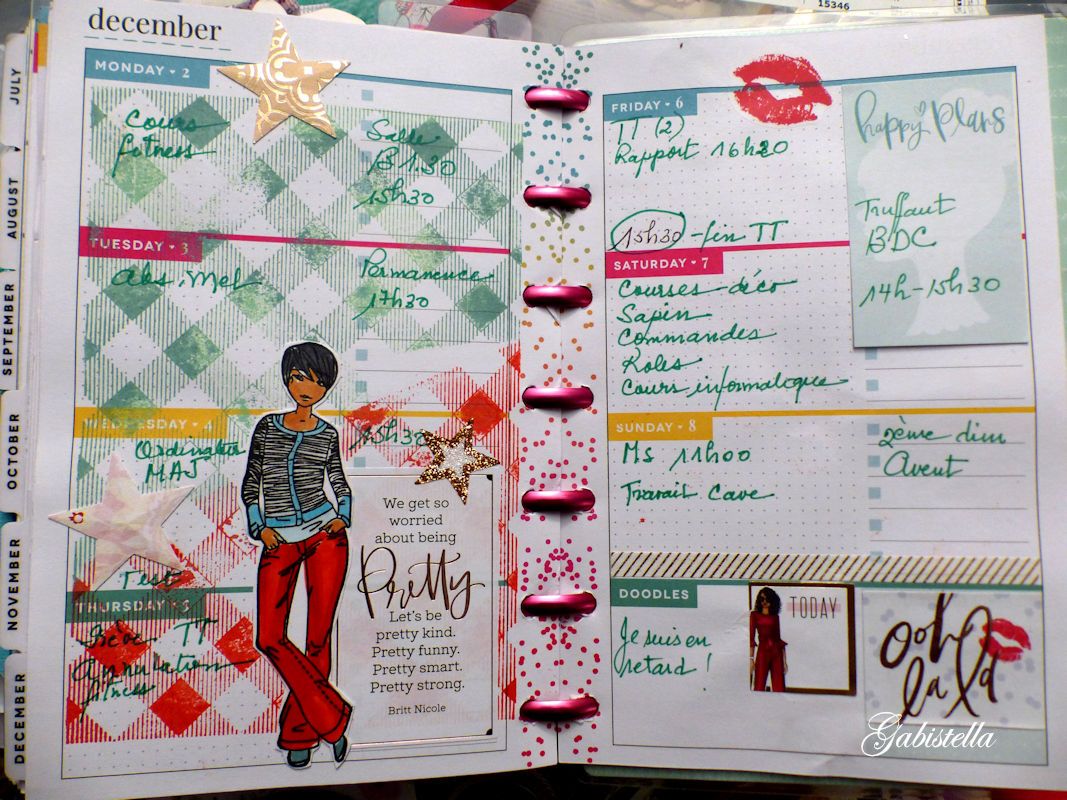 15346
december
JULY
AUGUST
SEPTEMBER
OCTOBER
NOVEMBER
DECEMBER
MONDAY ♥ 2
Cours
fitness
Salle
B 1.30
15h30
TUESDAY ♥ 3
Abs. Mel
Permanence
17h30
WEDNESDAY ♥ 4
Ordinateur
MAJ
15h30
Test
THURSDAY ♥ 5
Grève TT
Annulation
fitness
We get so
worried
about being
Pretty
Let's be
pretty kind.
Pretty funny.
Pretty smart.
Pretty strong.
Britt Nicole
FRIDAY ♥ 6
TT (2)
Rapport 16h20
15h30 - fin TT
happy Plans
Truffaut
BDC
14h-15h30
SATURDAY ♥ 7
Courses déco
Sapin
Commandes
Roles
Cours informatique
SUNDAY ♥ 8
MS 11h00
Travail cave
2ème dim
Avent
DOODLES
Je suis en
retard !
TODAY
ooh
la la
Gabistella